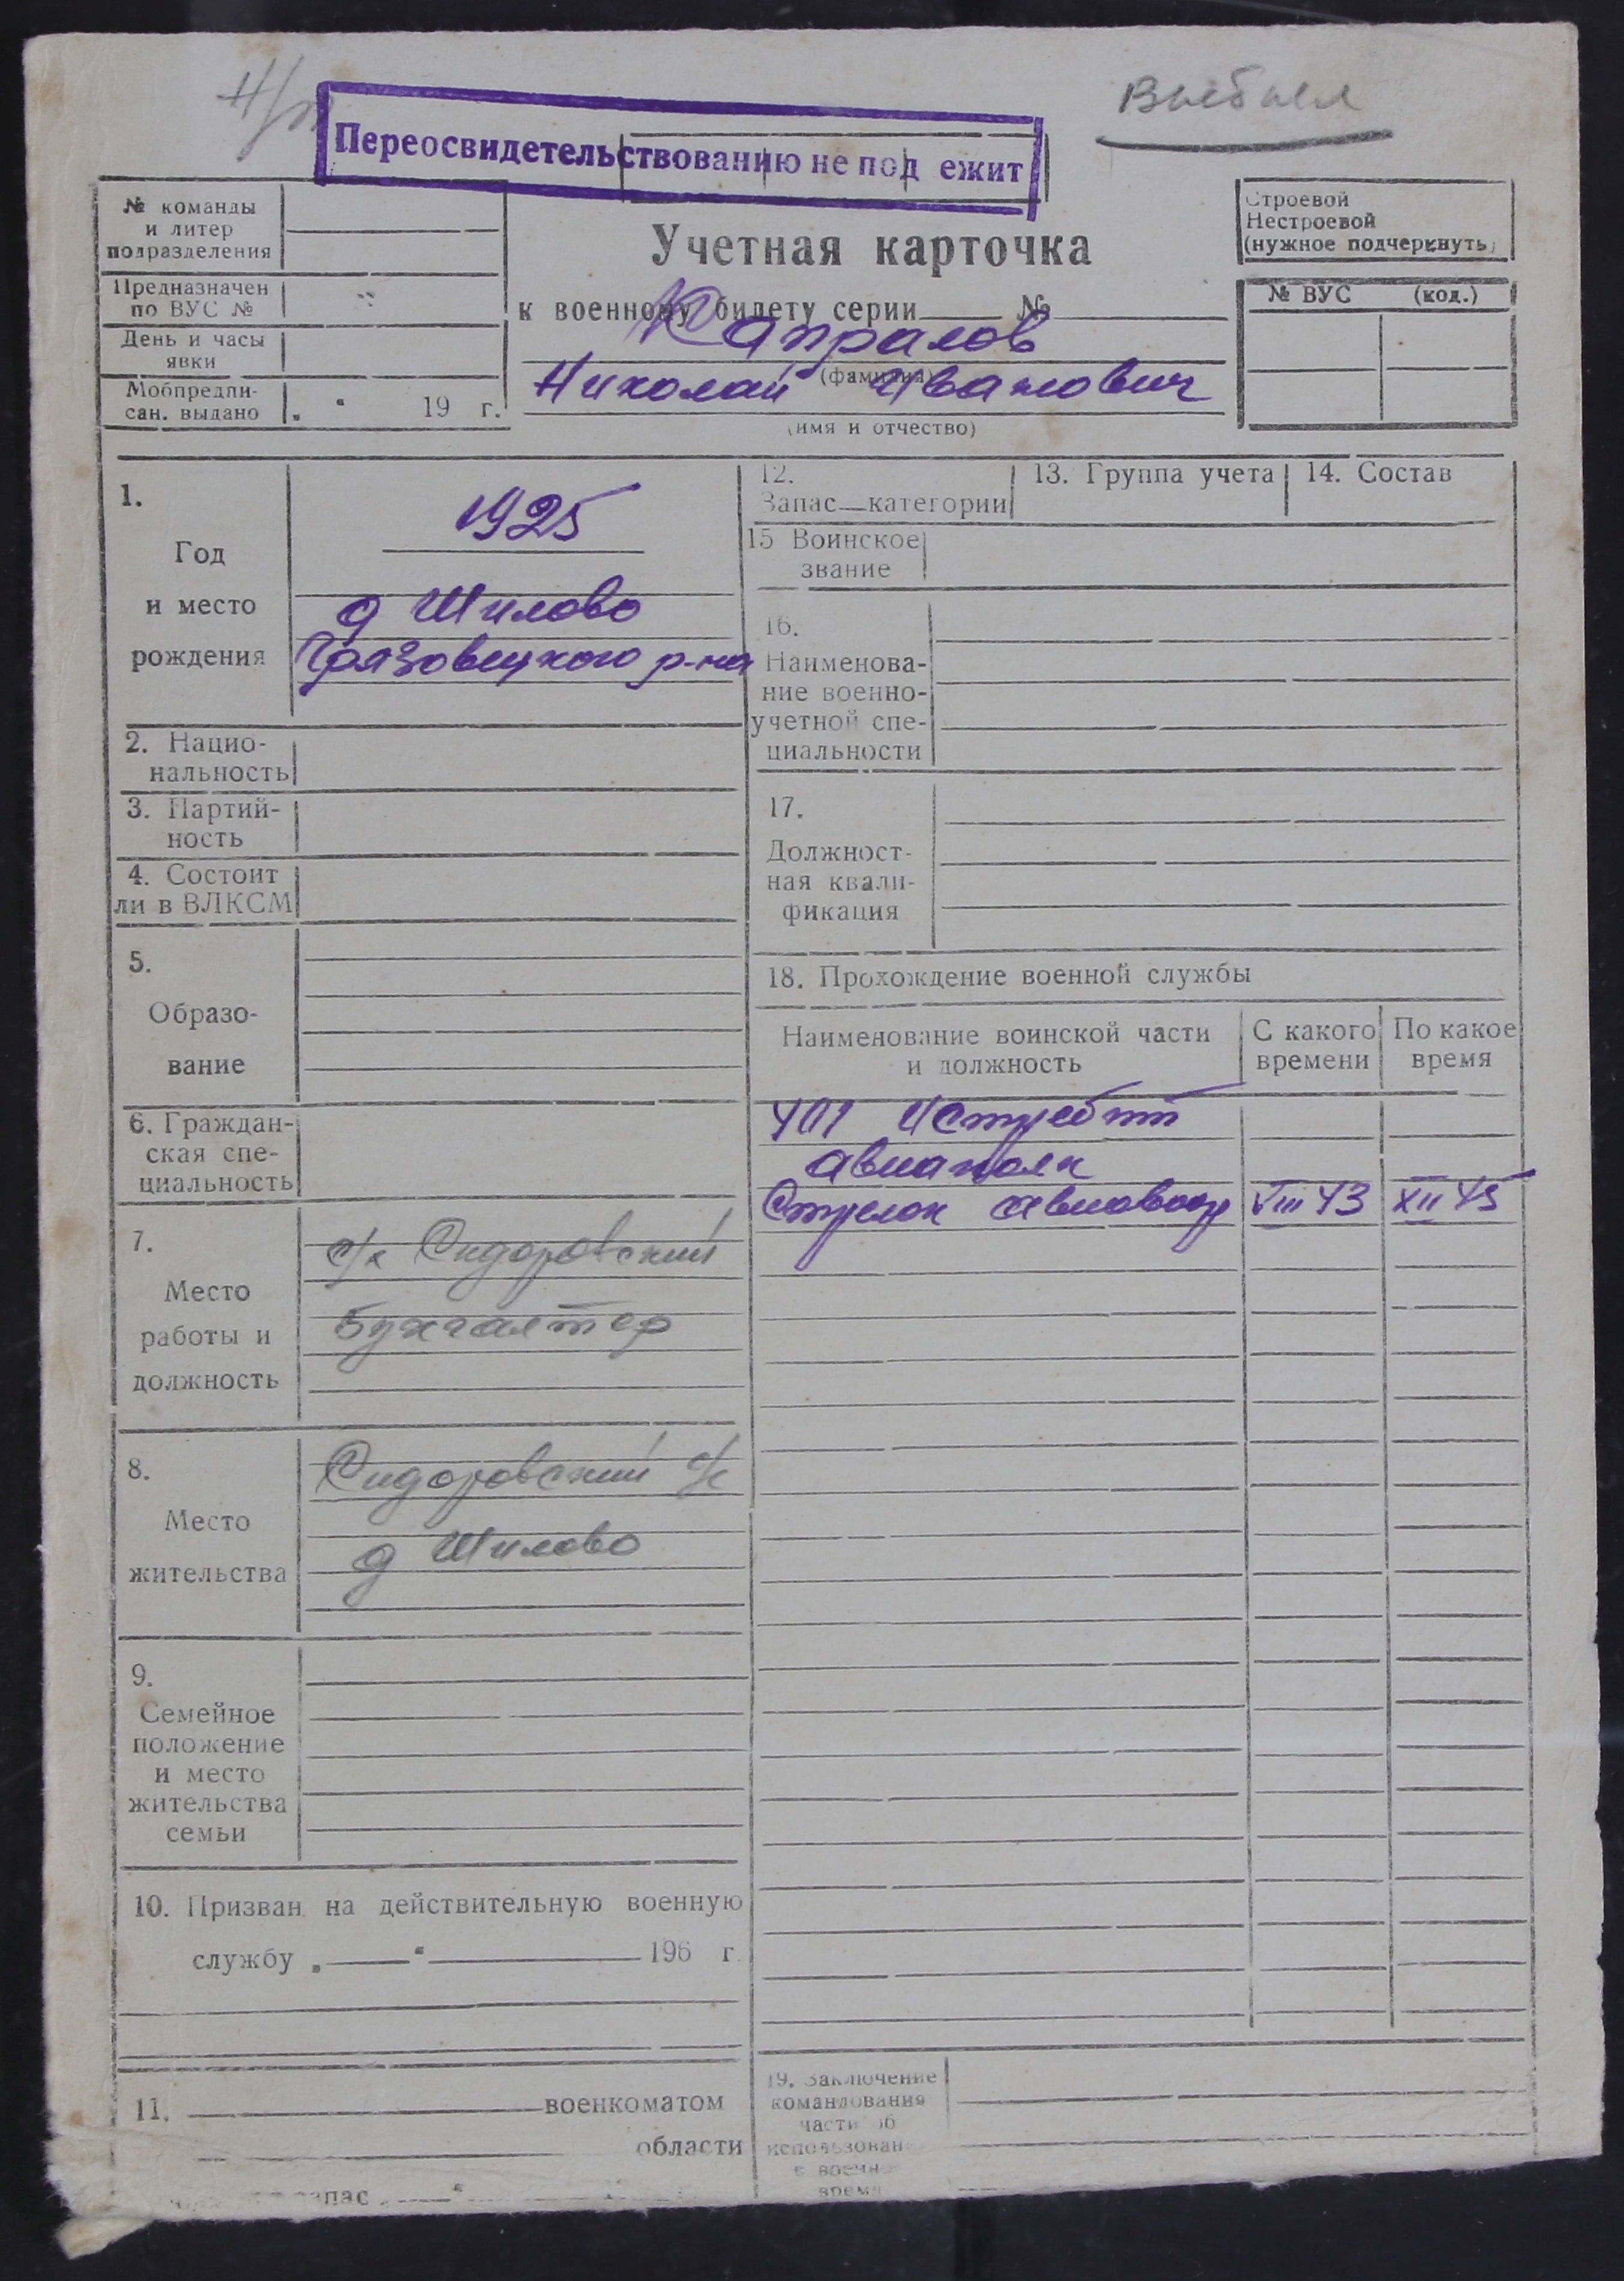 Н/г
Выбыл
Переосвидетельствованию не под ежит
№ команды
и литер
подразделения
Предназначен
по ВУС №
День и часы
явки
Мобпредпи-
сан. выдано „ “ 19 г.
Учетная карточка
к военному билету серии №
Капралов
(фамилия)
Николай Иванович
(имя и отчество)
Строевой
Нестроевой
(нужное подчеркнуть)
№ ВУС (код.)
1.
Год
и место
рождения
1925
д Шилово
Грязовецкого р-на
2. Нацио-
нальность
3. Партий-
ность
4. Состоит
ли в ВЛКСМ
5.
Образо-
вание
6. Граждан-
ская спе-
циальность
7.
Место
работы и
должность
с/х Сидоровский
бухгалтер
8.
Место
жительства
Сидоровский с/с
д Шилово
9.
Семейное
положение
и место
жительства
семьи
10. Призван на действительную военную
службу „ “ 196 г
11. военкоматом
области
запас „ “
12.
Запас—категории
13. Группа учета
14. Состав
15 Воинское
звание
16.
Наименова-
ние военно-
учетной спе-
циальности
17.
Должност-
ная квали-
фикация
18. Прохождение военной службы
Наименование воинской части
и должность
С какого
времени
По какое
время
401 Истребит
авиаполк
Стрелок авиавоор VIII 43 XII 45
19. Заключение
командования
части об
использован
в военн
врем